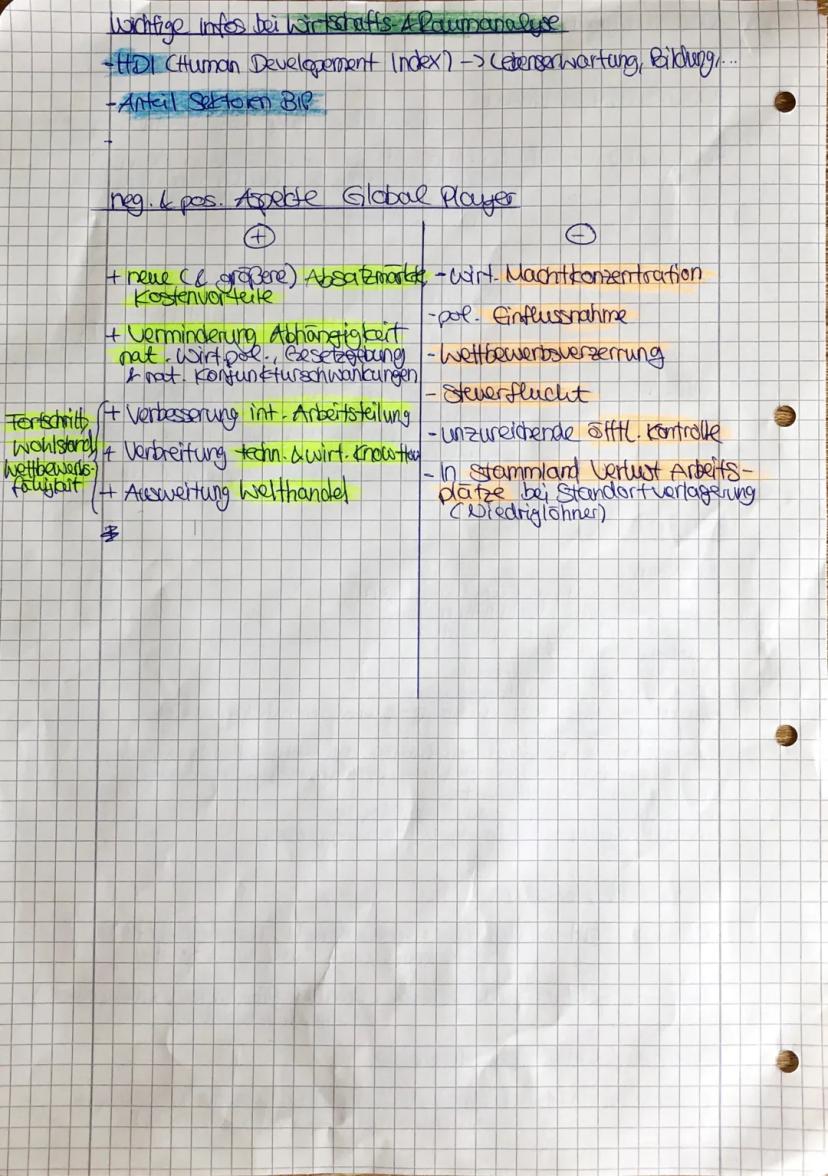 wichtige Infos bei Wirtschafts- & Raumanalyse
- HDI (Human Developement Index) -> Lebenserwartung, Bildung,...
- Anteil Sektoren BIP
-
neg. & pos. Aspekte Global Player
+
+ neue (& größere) Absatzmärkte
Kostenvorteile
+ Verminderung Abhängigkeit
nat. Wirt.pol., Gesetzgebung
& nat. Konjunkturschwankungen
+ Verbesserung int. Arbeitsteilung
+ Verbreitung techn. & wirt. Know How
+ Ausweitung Welthandel
Fortschritt,
Wohlstand,
Wettbewerbs-
fähigkeit
-
- wirt. Machtkonzentration
- pol. Einflussnahme
- Wettbewerbsverzerrung
- Steuerflucht
- unzureichende öfftl. Kontrolle
- In Stammland Verlust Arbeits-
plätze bei Standortverlagerung
(Niedriglöhner)